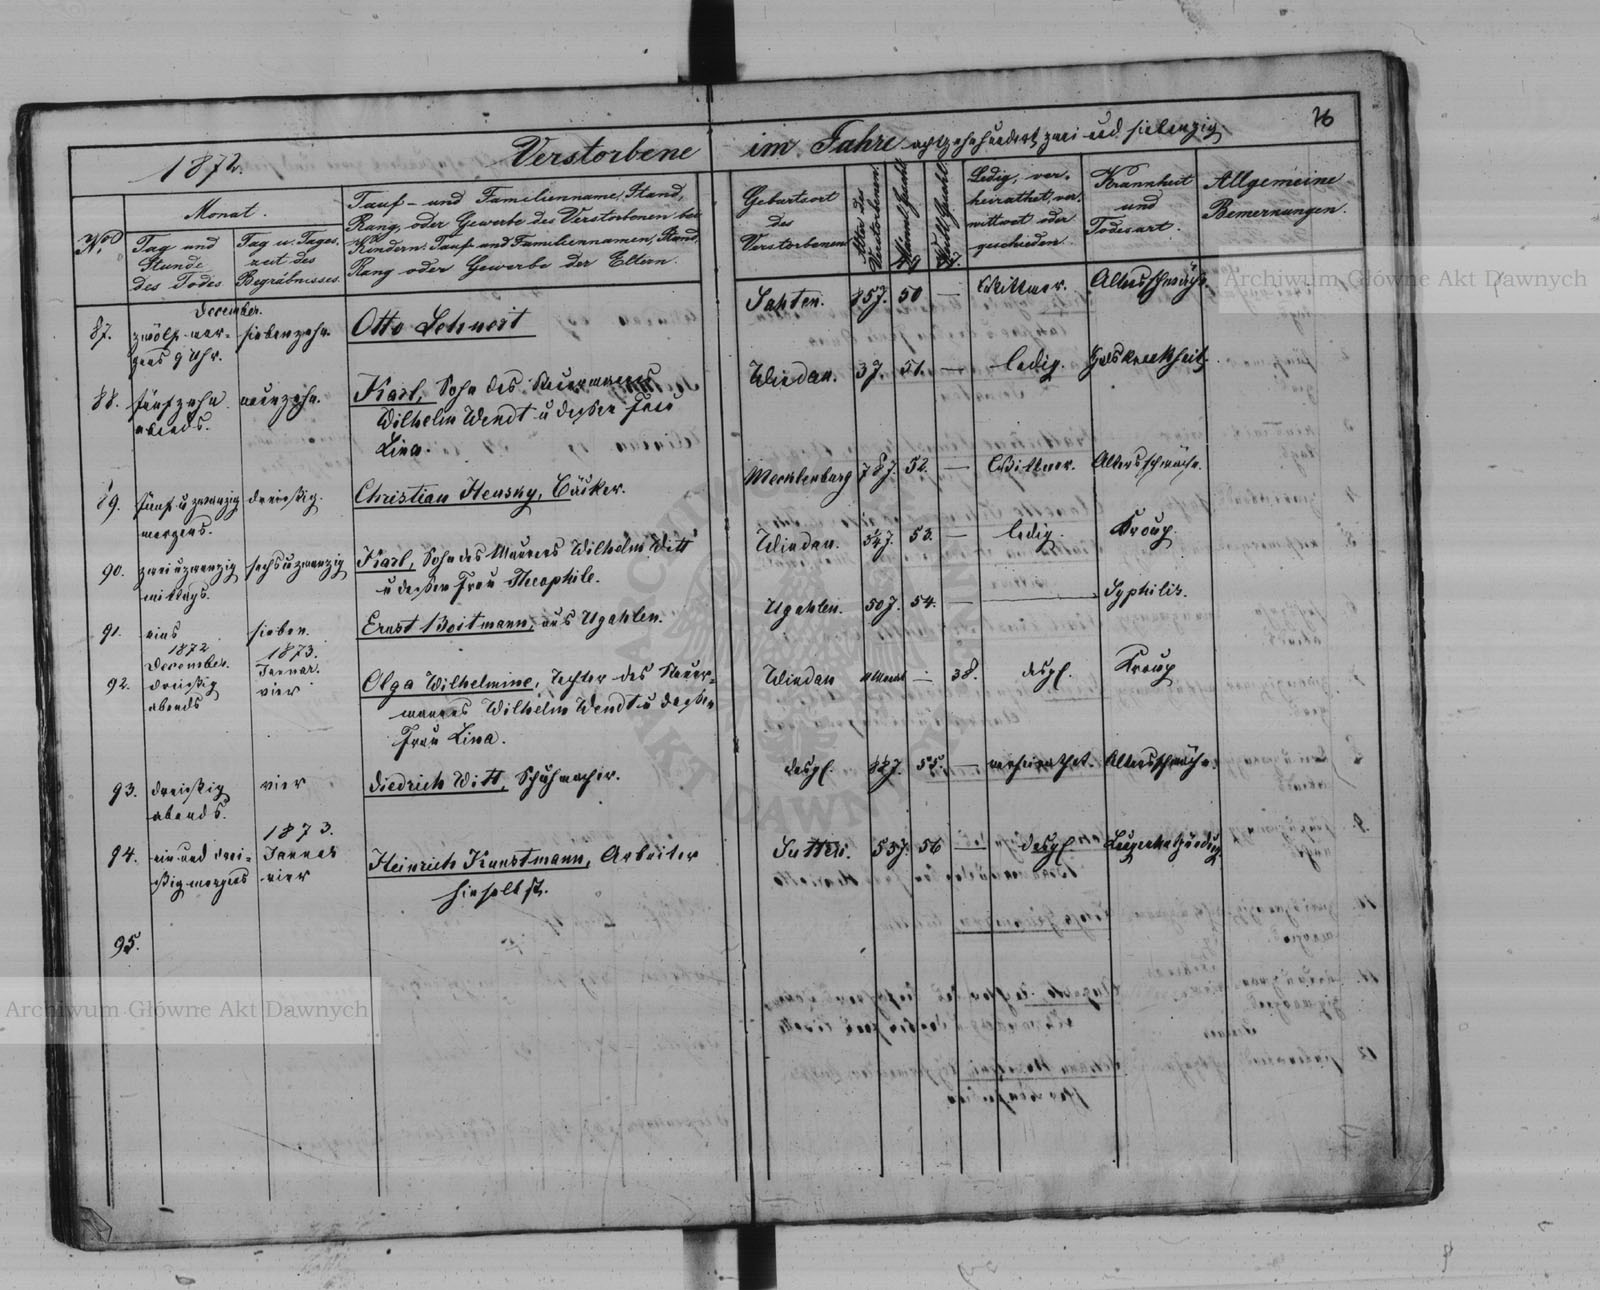 76
1872.
Verstorbene im Jahre achtzehnhundert zwei und siebenzig.
No
Monat.
Tag und Stunde des Todes
Tag u. Tageszeit des Begräbnisses.
Tauf- und Familienname, Stand,
Rang, oder Gewerbe des Verstorbenen bei
Kindern: Tauf- und Familiennamen, Stand,
Rang oder Gewerbe der Eltern.
Geburtsort
des
Verstorbenen
Alter des Verstorbenen.
Ledig, ver-
heirathet, ver-
wittwet oder
geschieden.
Krankheit
und
Todesart.
Allgemeine
Bemerkungen.
December.
87. zwölf mor- siebenzehn. Otto Lehnert Sahten. 85 J. 50 — Wittwer. Altersschwäche.
gens 9 Uhr.
88. fünfzehn neunzehn. Karl, Sohn des Steuermannes Windau. 3 J. 51. — ledig. Halskrankheit.
abends. Wilhelm Wendt u dessen Frau
Lina.
89. fünf u zwanzig dreissig. Christian Hensky, Bäcker. Mecklenburg 78 J. 52. — Wittwer. Altersschwäche.
morgens.
90. zwei u zwanzig sechs u zwanzig Karl, Sohn des Maurers Wilhelm Witt Windau. 53. — ledig. Kroup.
mittags. u dessen Frau Theophile.
91. eins sieben. Ernst Boitmann, aus Ugahlen. Ugahlen. 50 J. 54. — — Syphilis.
1872 1873.
December. Januar.
92. dreissig vier Olga Wilhelmine, Tochter des Steuer- Windau — 38. desgl. Kroup
abends mannes Wilhelm Wendt u dessen
Frau Lina.
93. dreissig vier Diedrich Witt, Schuhmacher. desgl. 88 J. 55. — verheirathet. Altersschwäche.
abends.
1873.
94. ein und drei- Januar Heinrich Kunstmann, Arbeiter 53 J. 56 — desgl
ssig morgens vier hieselbst.
95.
Archiwum Główne Akt Dawnych
Archiwum Główne Akt Dawnych